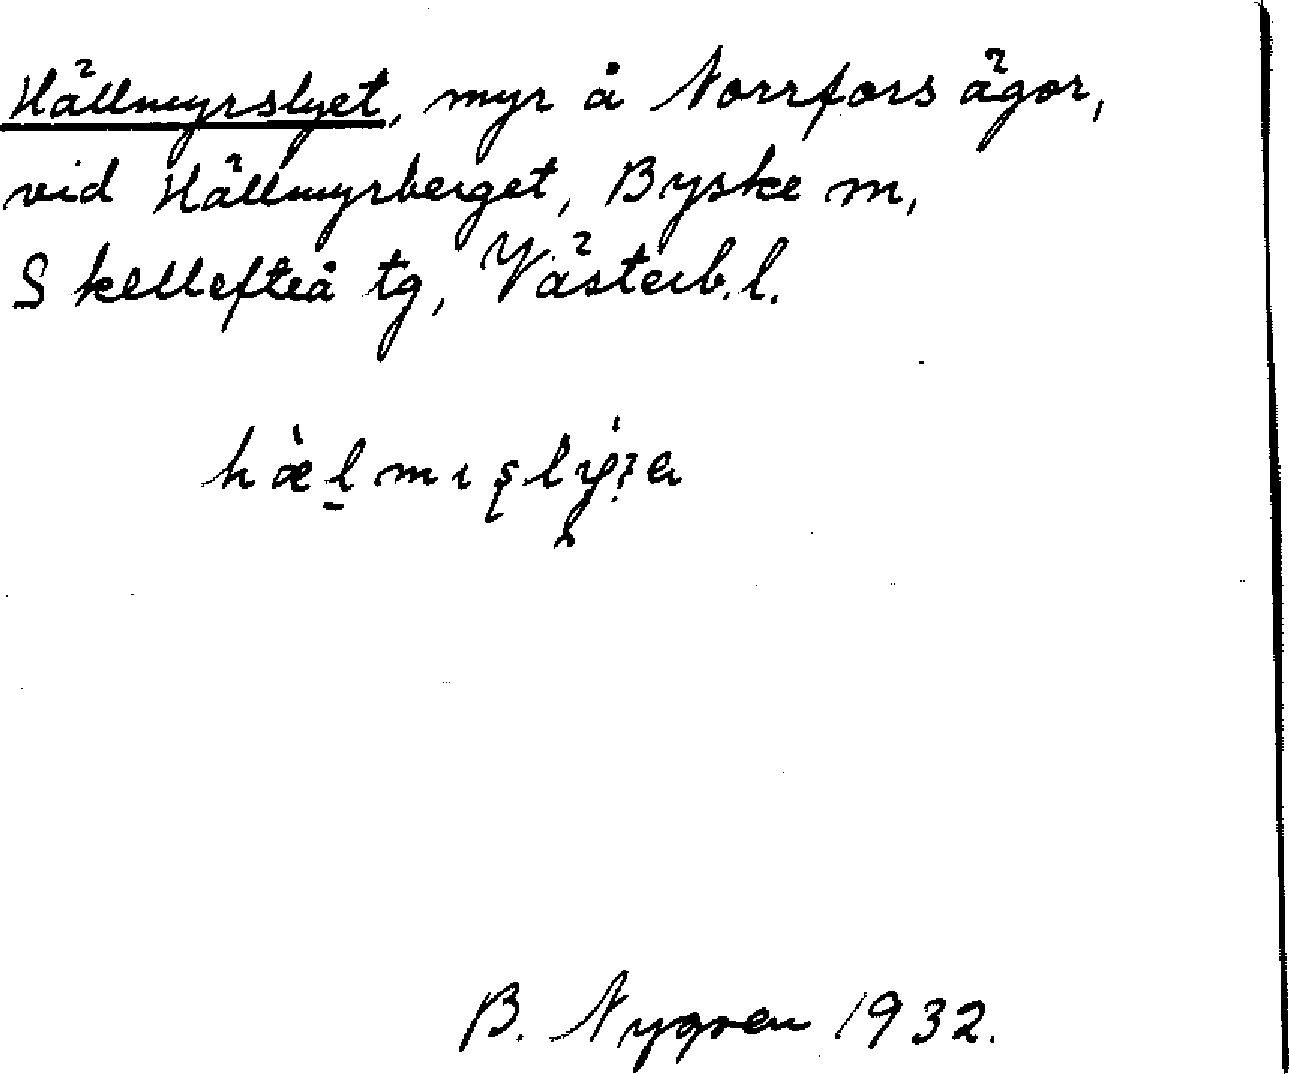 Hällmyrslyet, myr å Norrfors ägor,
vid Hällmyrberget, Byske m,
Skellefteå tg, Västerb. l.
B. Nygren 1932.